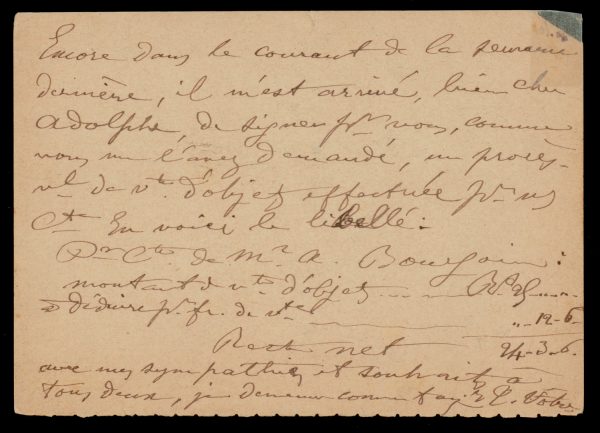 Encore dans le courant de la semaine
dernière, il m'est arrivé, bien cher
Adolphe, de signer pr vous, comme
vous me l'avez demandé, un procès-
vl de vte d'objets effectuée pr vs
Cte En voici le libellé:
Pr Cte de Mr A. Bourgoin:
montant de vte d'objets
à déduire pr fr. de vte " 12-6.
Reste net 24-3-6.
avec mes sympathies et souhaits à
tous deux, je demeure comme tajrs